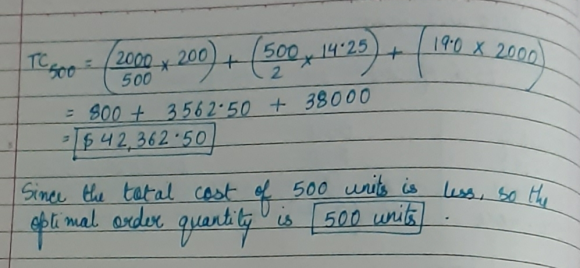 TC500 = (2000/500 × 200) + (500/2 × 14.25) + (19.0 × 2000)
= 800 + 3562.50 + 38000
= $42,362.50
Since the total cost of 500 units is less, so the
optimal order quantity is 500 units.